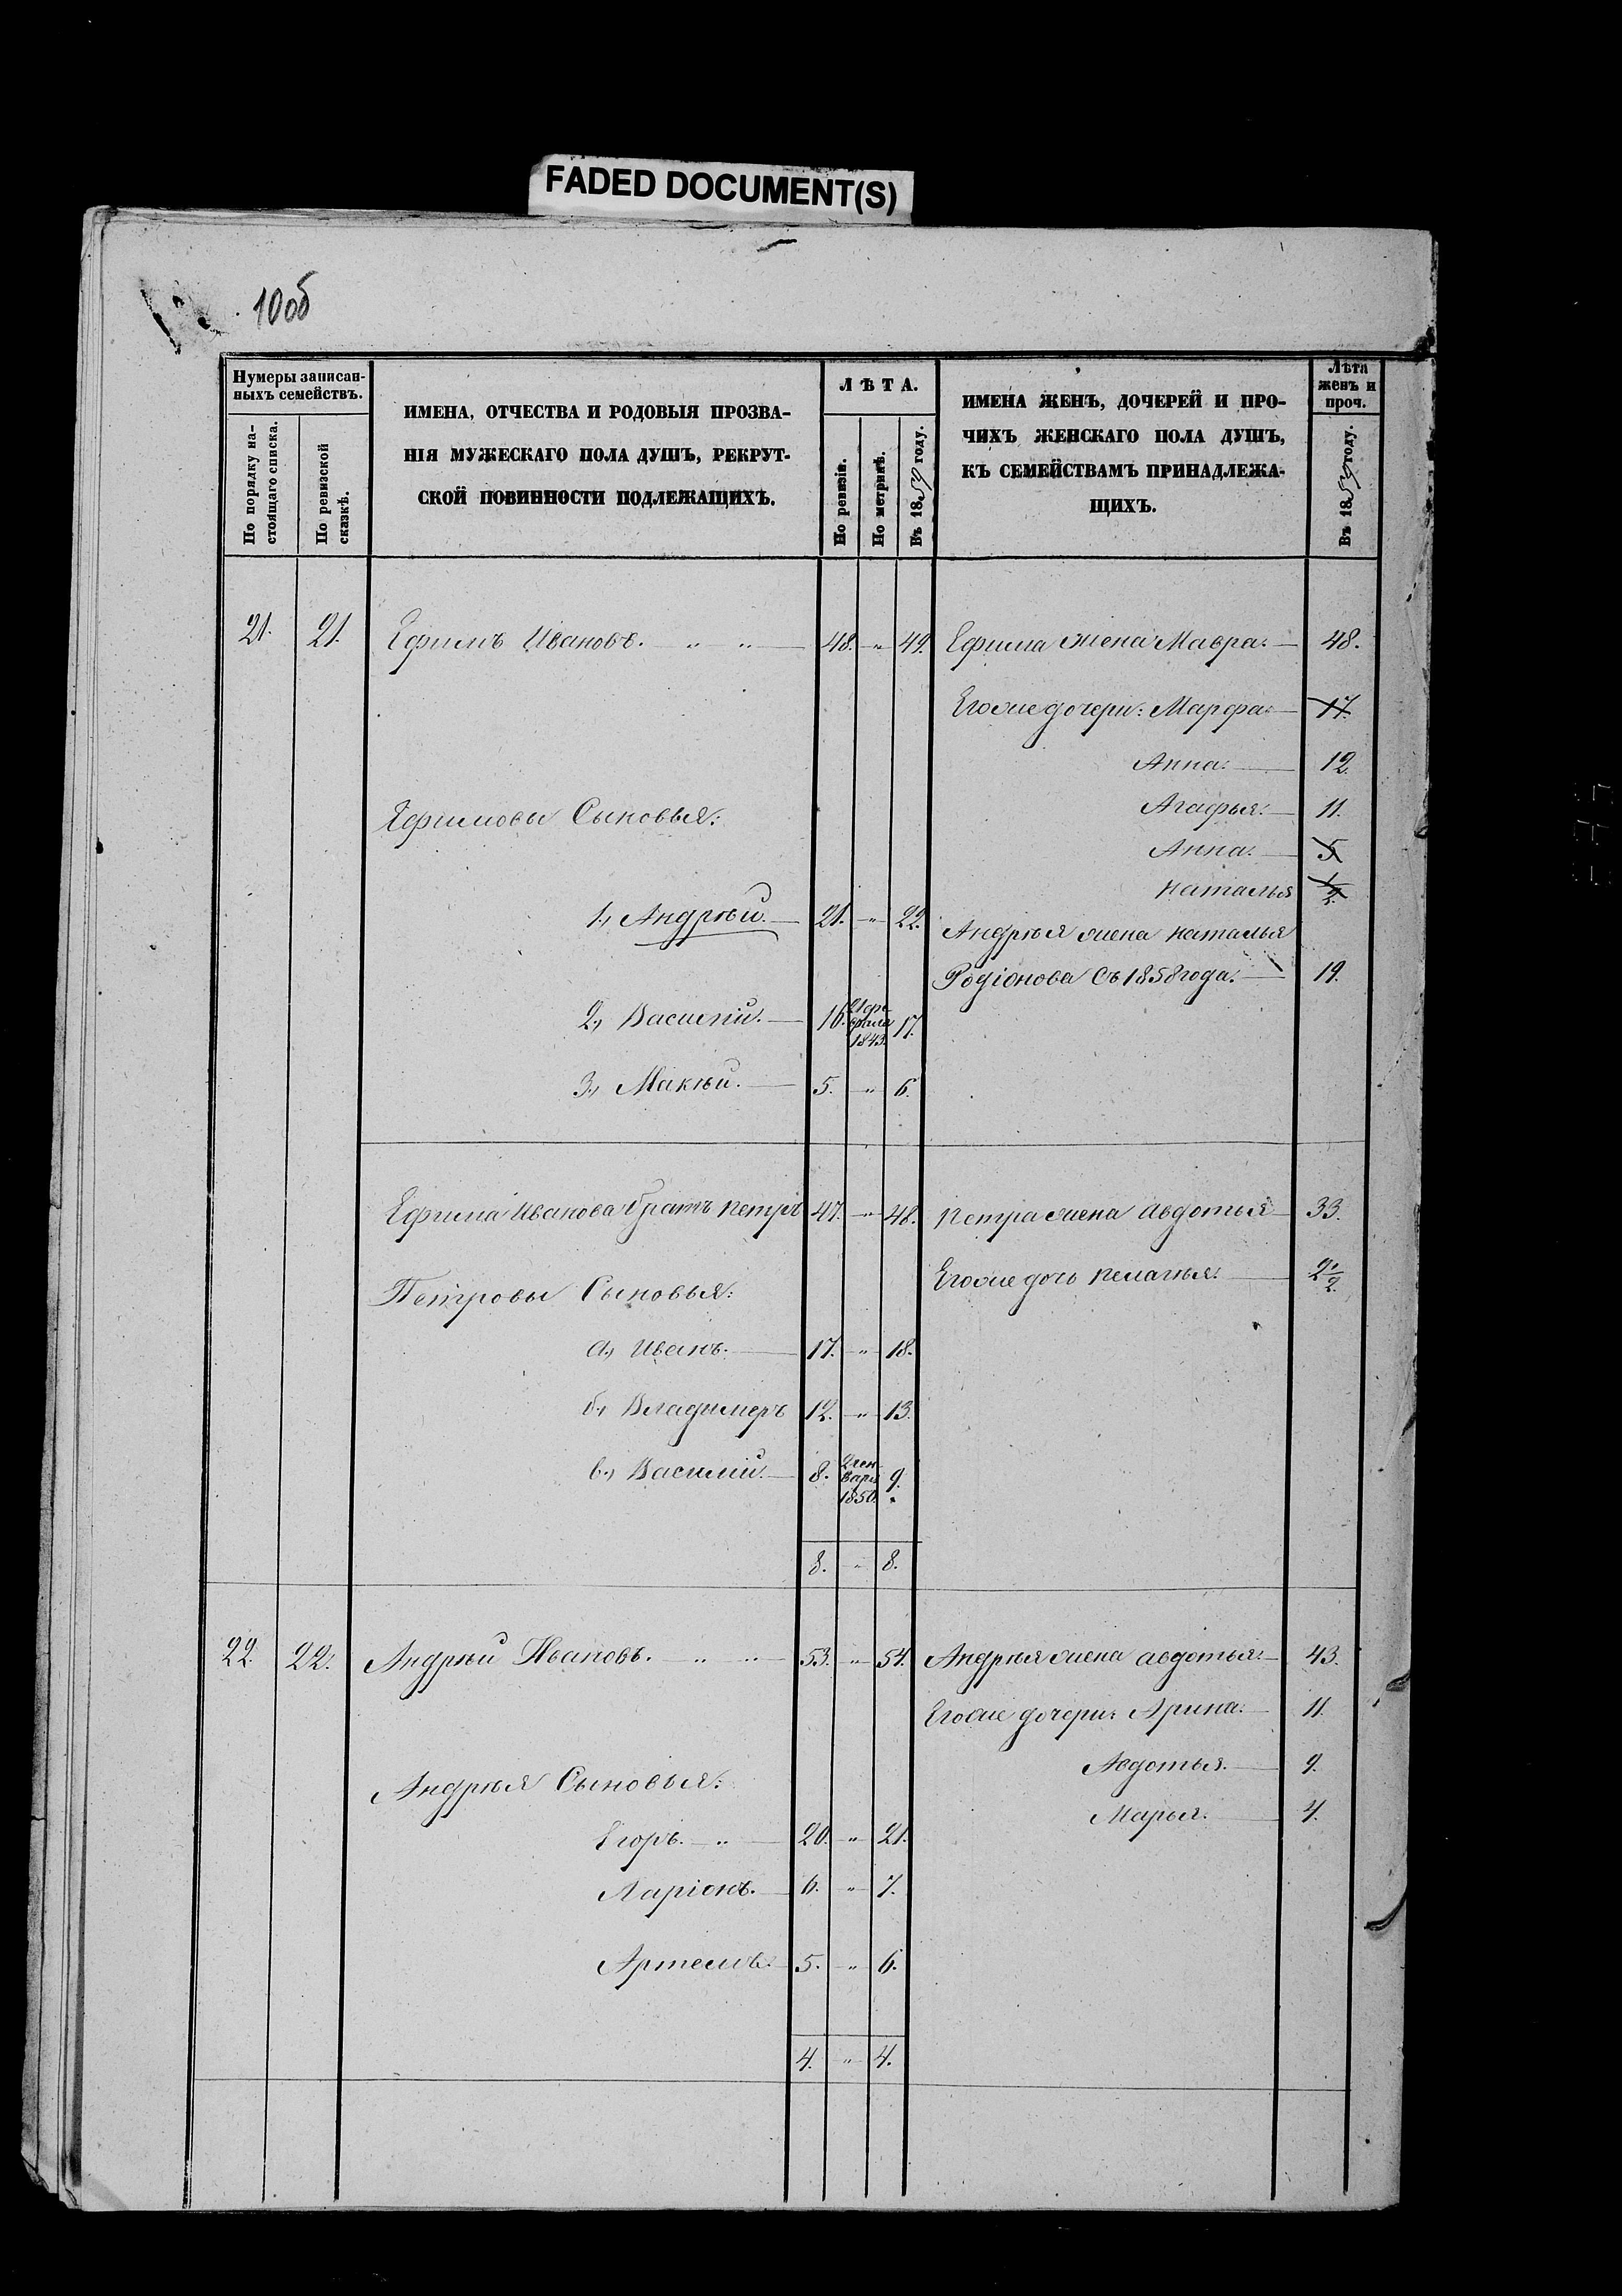 FADED DOCUMENT(S)
10об
Нумеры записан-
ныхъ семействъ.
По порядку на-
стоящаго списка.
По ревизской
сказкѣ.
ИМЕНА, ОТЧЕСТВА И РОДОВЫЯ ПРОЗВА-
НІЯ МУЖЕСКАГО ПОЛА ДУШЪ, РЕКРУТ-
СКОЙ ПОВИННОСТИ ПОДЛЕЖАЩИХЪ.
ЛѢТА.
По ревизіи.
По метрикѣ.
Въ 1859 году.
ИМЕНА ЖЕНЪ, ДОЧЕРЕЙ И ПРО-
ЧИХЪ ЖЕНСКАГО ПОЛА ДУШЪ,
КЪ СЕМЕЙСТВАМЪ ПРИНАДЛЕЖА-
ЩИХЪ.
Лѣта
женъ и
проч.
Въ 1859 году.
21. 21. Ефимъ Ивановъ. „ „ 48. „ 49. Ефима жена Мавра. 48.
Егоже дочери: Марфа. 17.
Анна. 12.
Ефимовы Сыновья: Агафья. 11.
Анна. 5
Наталья 1/2.
1, Андрѣй. 21. „ 22. Андрѣя жена Наталья
Родіонова съ 1858 года. 19.
2, Василій. 16. 1843. 17.
3, Макѣй. 5. „ 6.
Ефима Иванова братъ Петръ 47. „ 48. Петра жена Авдотья 33.
Егоже дочь Пелагья. 2 1/2.
Петровы Сыновья:
а, Иванъ. 17. „ 18.
б, Владимеръ 12. „ 13.
в, Василій. 8. 2 ген-
варя
1850. 9.
8. „ 8.
22. 22. Андрѣй Ивановъ. „ „ 53. „ 54. Андрѣя жена Авдотья. 43.
Егоже дочери: Арина. 11.
Авдотья. 9.
Андрѣя Сыновья:
Марья. 4.
Егоръ. „ 20. „ 21.
Ларіонъ. 6. „ 7.
Артемъ. 5. „ 6.
4. „ 4.